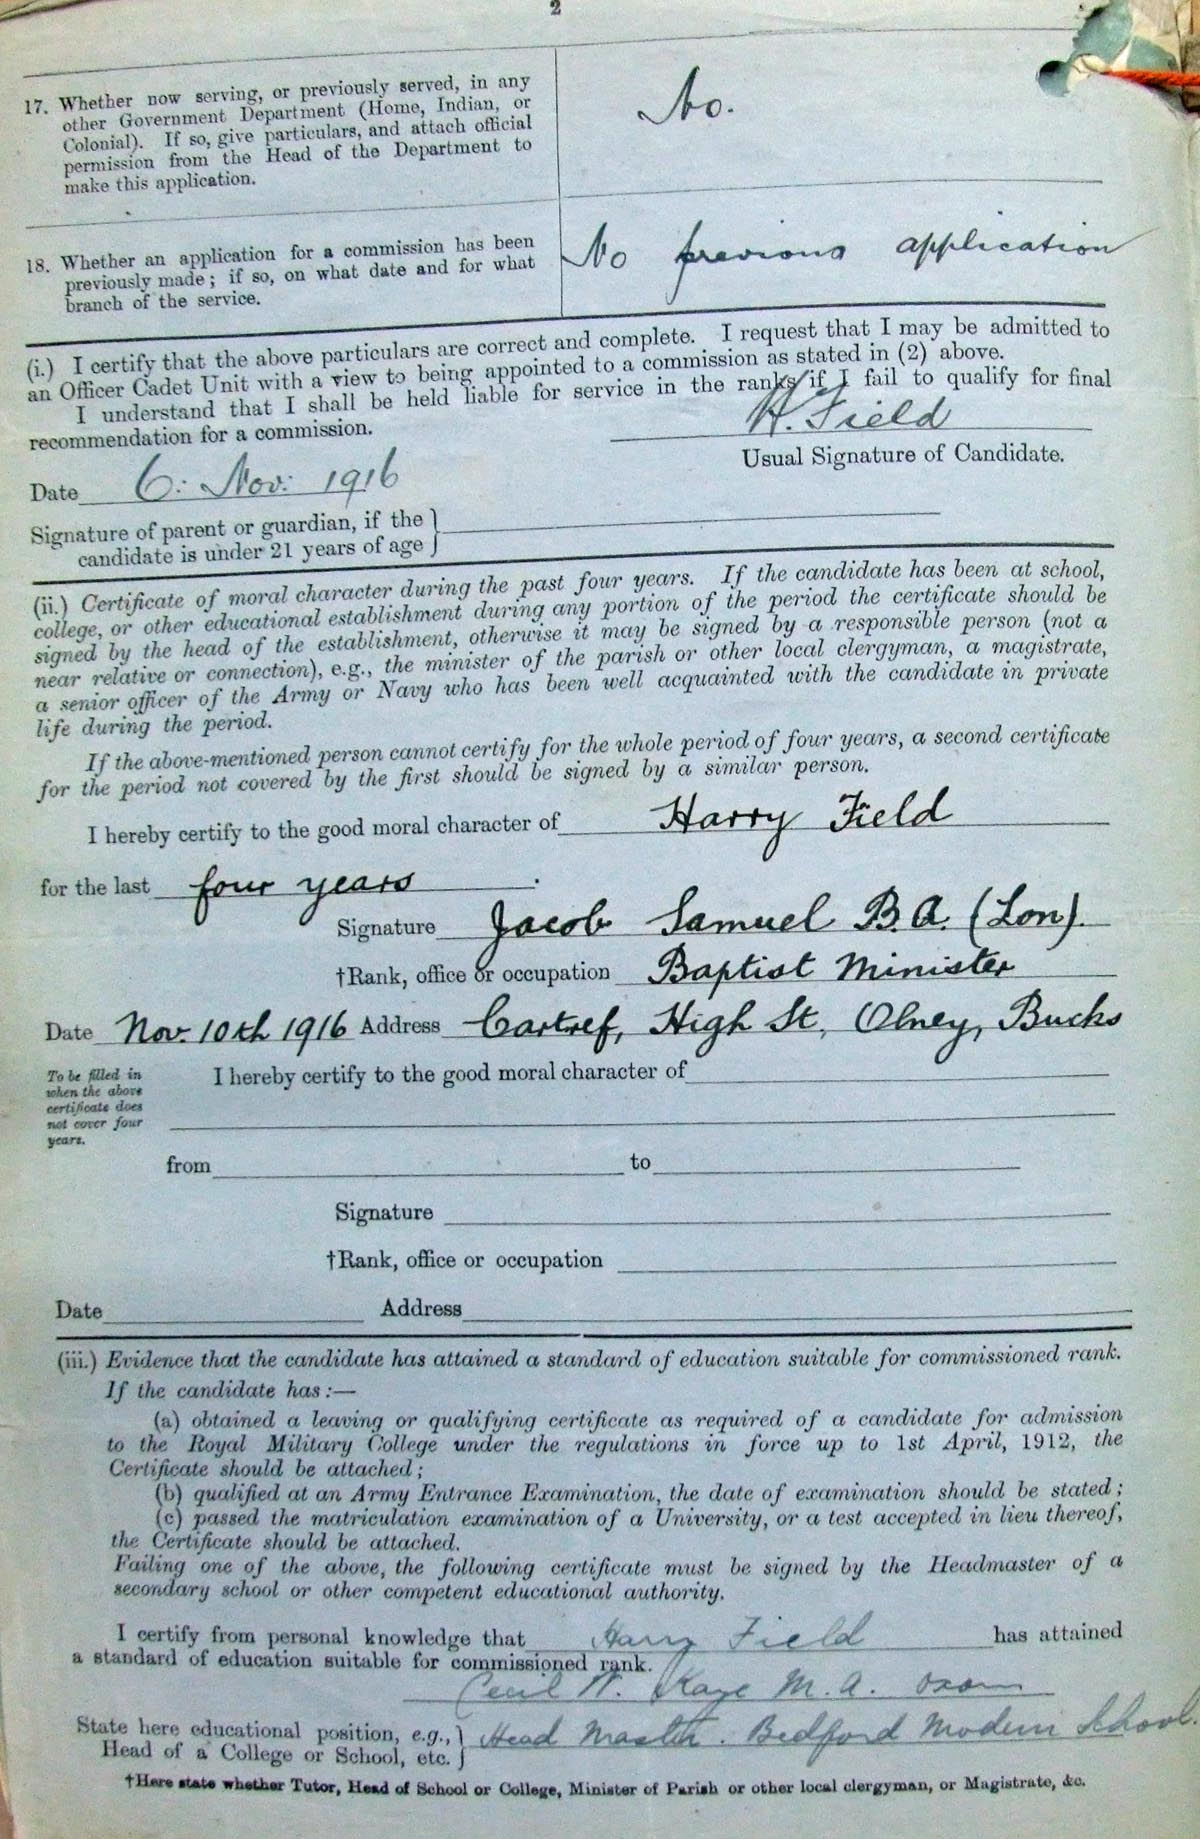 2
17. Whether now serving, or previously served, in any
other Government Department (Home, Indian, or
Colonial). If so, give particulars, and attach official
permission from the Head of the Department to
make this application.
No.
18. Whether an application for a commission has been
previously made; if so, on what date and for what
branch of the service.
No previous application
(i.) I certify that the above particulars are correct and complete. I request that I may be admitted to
an Officer Cadet Unit with a view to being appointed to a commission as stated in (2) above.
I understand that I shall be held liable for service in the ranks if I fail to qualify for final
recommendation for a commission.
H. Field
Usual Signature of Candidate.
Date 6: Nov: 1916
Signature of parent or guardian, if the }
candidate is under 21 years of age }
(ii.) Certificate of moral character during the past four years. If the candidate has been at school,
college, or other educational establishment during any portion of the period the certificate should be
signed by the head of the establishment, otherwise it may be signed by a responsible person (not a
near relative or connection), e.g., the minister of the parish or other local clergyman, a magistrate,
a senior officer of the Army or Navy who has been well acquainted with the candidate in private
life during the period.
If the above-mentioned person cannot certify for the whole period of four years, a second certificate
for the period not covered by the first should be signed by a similar person.
I hereby certify to the good moral character of Harry Field
for the last four years.
Signature Jacob Samuel B.A. (Lon).
†Rank, office or occupation Baptist Minister
Date Nov. 10th 1916 Address Cartref, High St, Olney, Bucks
To be filled in
when the above
certificate does
not cover four
years.
I hereby certify to the good moral character of
from to
Signature
†Rank, office or occupation
Date Address
(iii.) Evidence that the candidate has attained a standard of education suitable for commissioned rank.
If the candidate has:—
(a) obtained a leaving or qualifying certificate as required of a candidate for admission
to the Royal Military College under the regulations in force up to 1st April, 1912, the
Certificate should be attached;
(b) qualified at an Army Entrance Examination, the date of examination should be stated;
(c) passed the matriculation examination of a University, or a test accepted in lieu thereof,
the Certificate should be attached.
Failing one of the above, the following certificate must be signed by the Headmaster of a
secondary school or other competent educational authority.
I certify from personal knowledge that Harry Field has attained
a standard of education suitable for commissioned rank.
Cecil W. Kaye M.A. Oxon
State here educational position, e.g., }
Head of a College or School, etc. }
Head Master. Bedford Modern School.
†Here state whether Tutor, Head of School or College, Minister of Parish or other local clergyman, or Magistrate, &c.